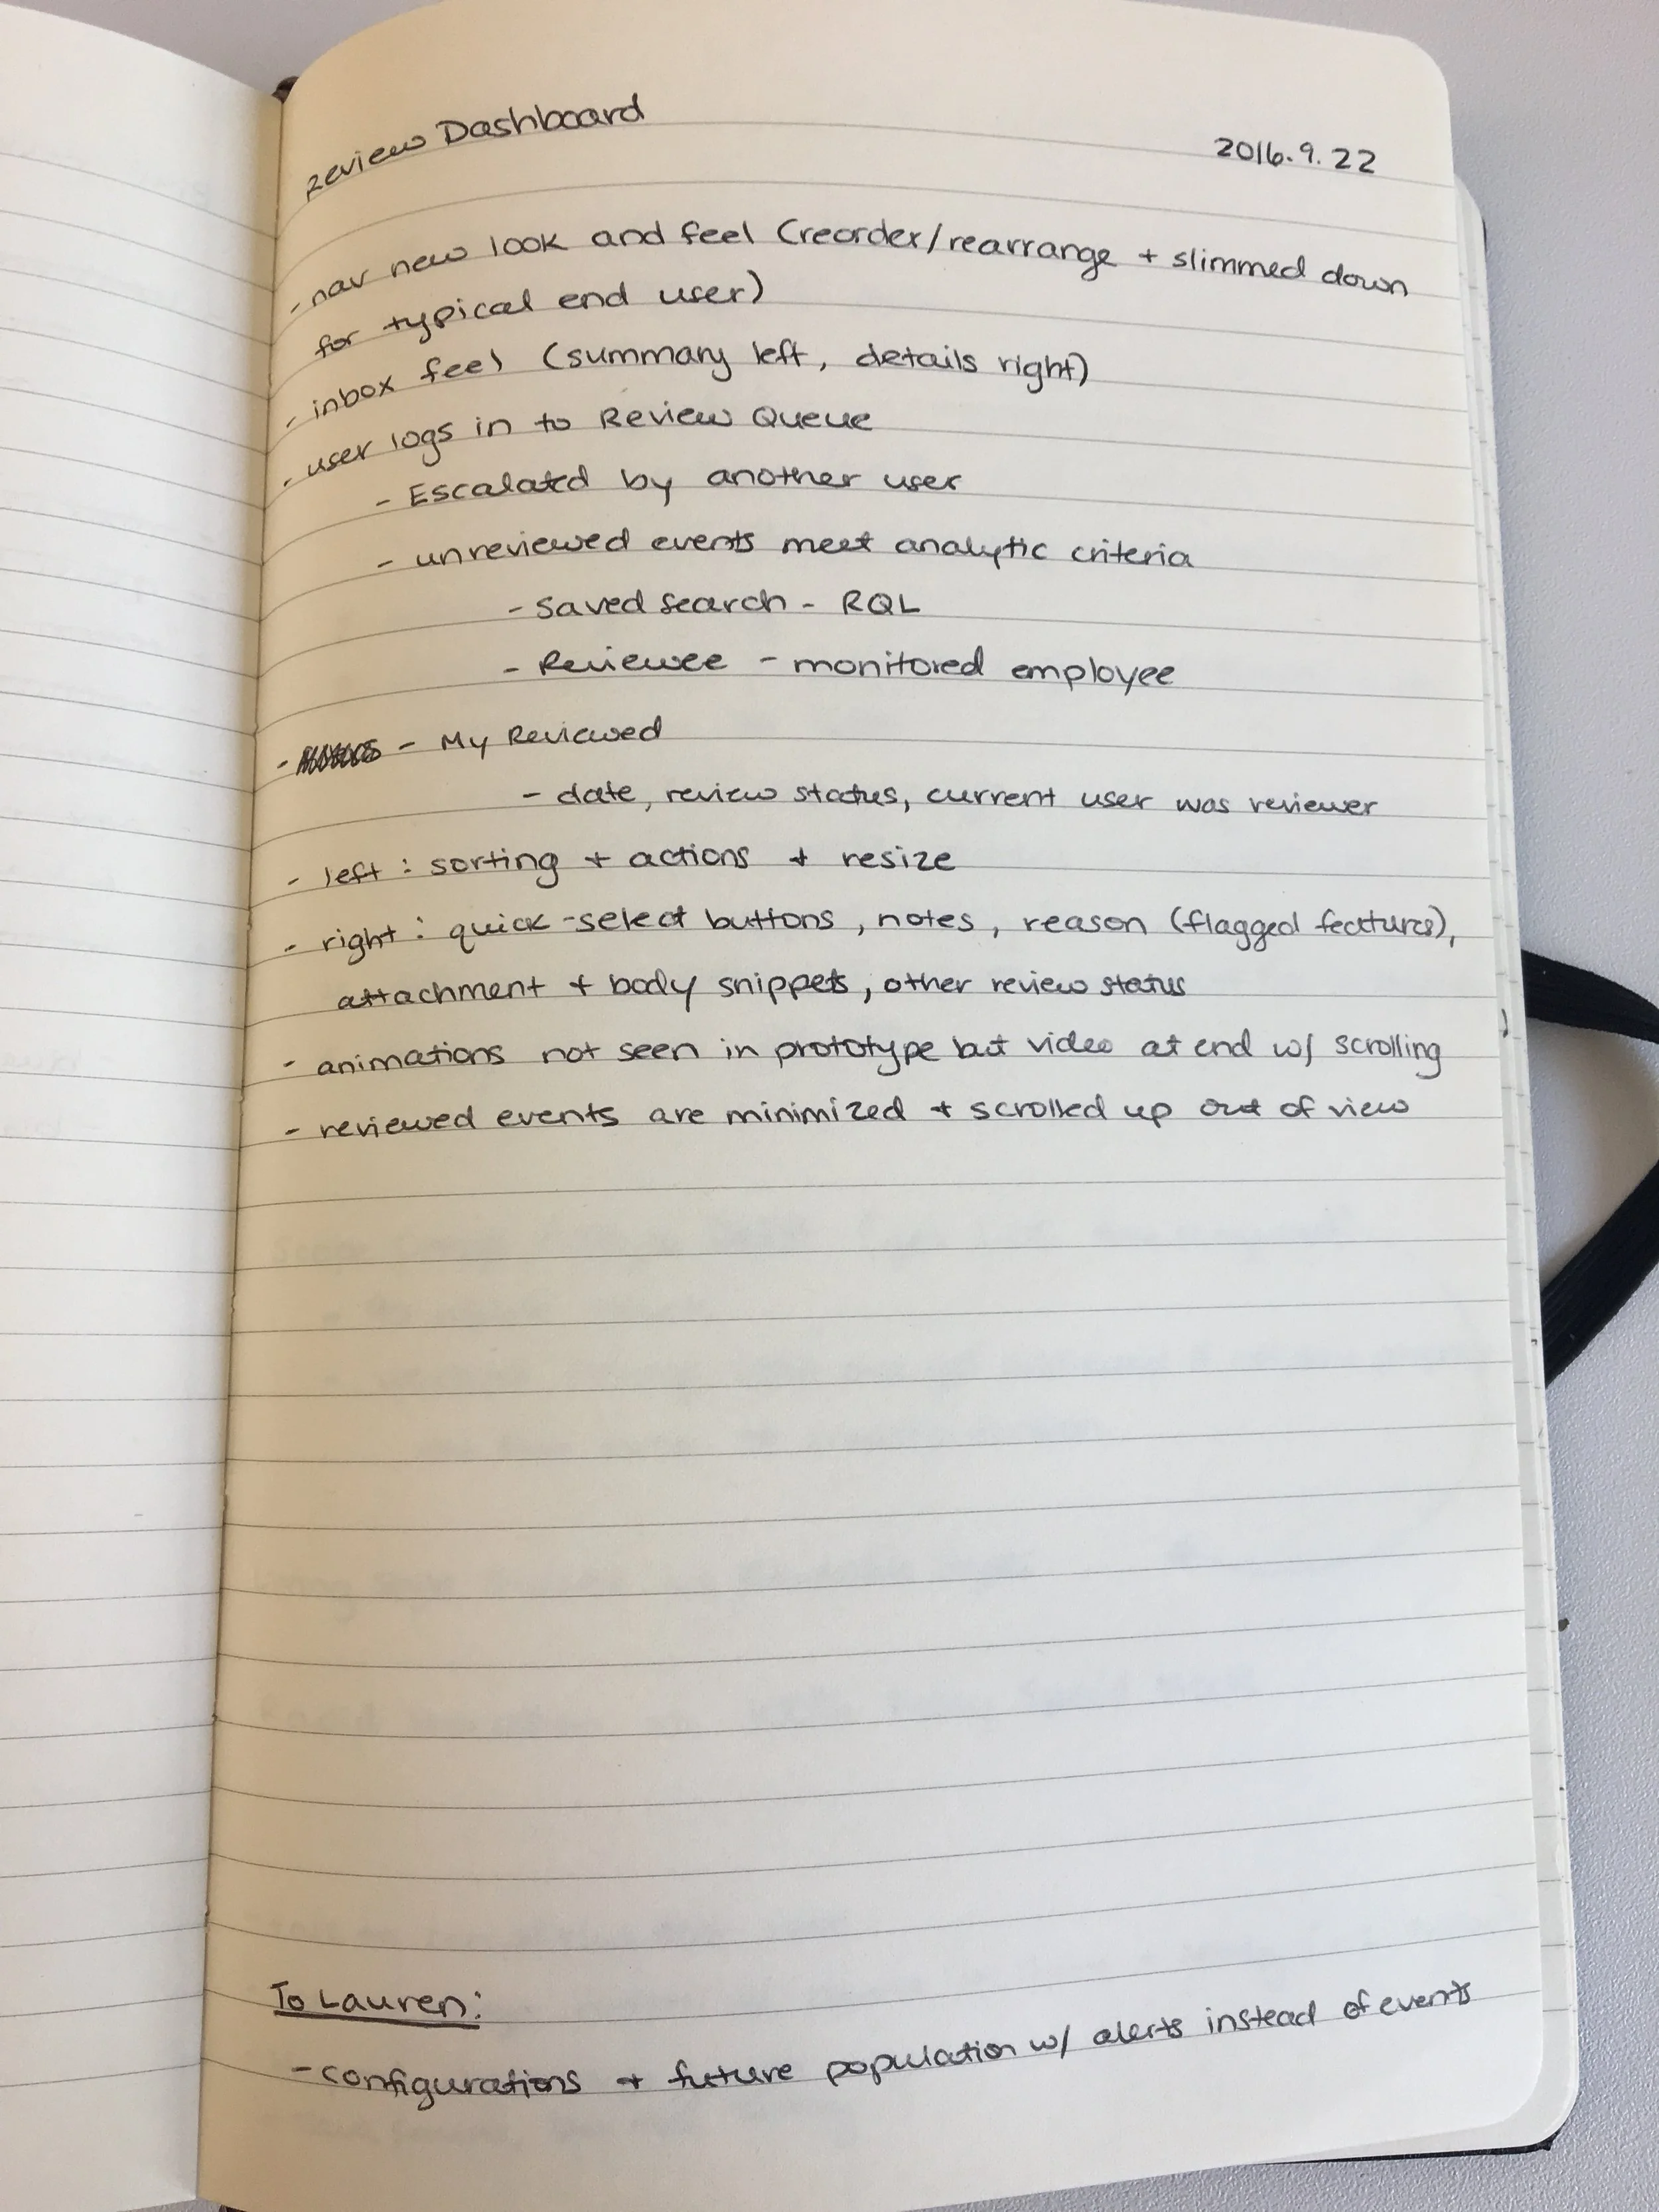 Review Dashboard
2016.9.22
- nav new look and feel (reorder/rearrange + slimmed down
for typical end user)
- inbox feel (summary left, details right)
- user logs in to Review Queue
- Escalated by another user
- unreviewed events meet analytic criteria
- saved search - RQL
- Reviewee - monitored employee
- - My Reviewed
- date, review status, current user was reviewer
- left: sorting + actions + resize
- right: quick-select buttons, notes, reason (flagged features),
attachment + body snippets, other review status
- animations not seen in prototype but video at end w/ scrolling
- reviewed events are minimized + scrolled up out of view
To Lauren:
- configurations + future population w/ alerts instead of events